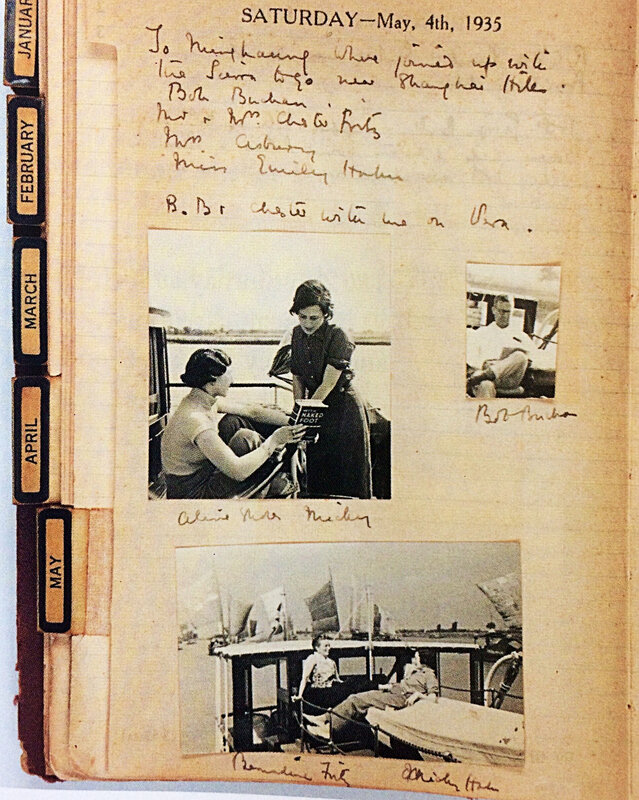 SATURDAY—May, 4th, 1935
To Minghong where joined up with
the Sirra to go near Shanghai Hills.
Bob Buchan.
Mr & Mrs. Chester Fritz
Mrs Asbury
Miss Emily Hahn
B. B & Chester with me on Vera.
JANUARY
FEBRUARY
MARCH
APRIL
MAY
NAKED
FOOT
Bob Buchan
Mickey
Bernardine Fritz Mickey Hahn